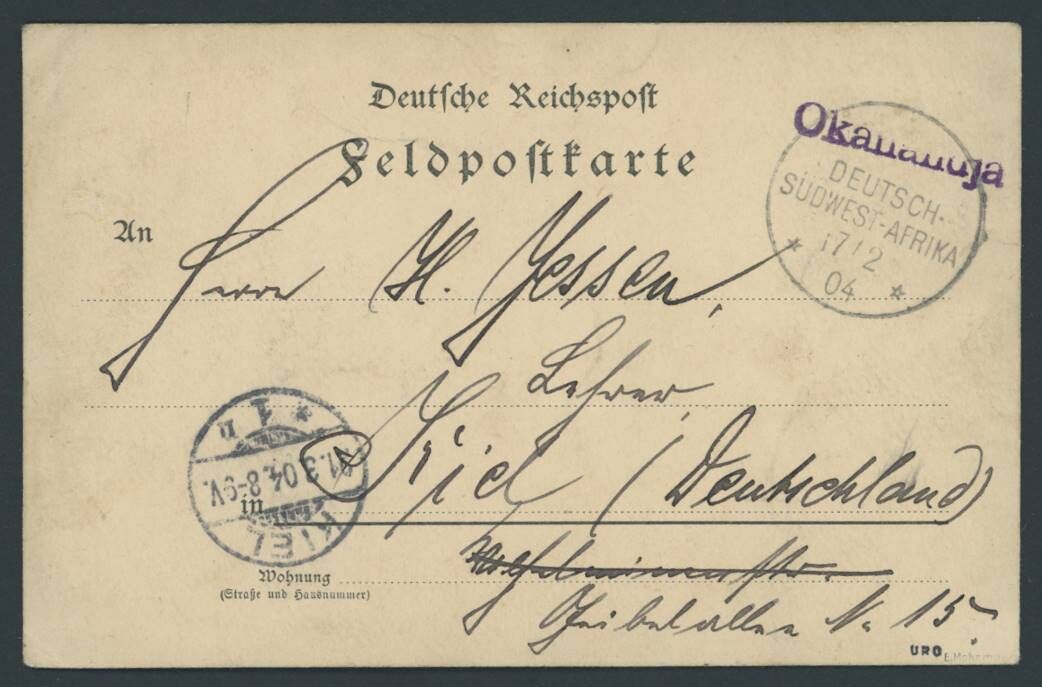 Deutsche Reichspost
Feldpostkarte
Okahandja
DEUTSCH-
SÜDWEST-AFRIKA
17/2
04
An
Herrn H. Jessen,
Lehrer,
in Kiel (Deutschland)
KIEL
1.3.04. 8-9V.
1 n
Wohnung
(Straße und Hausnummer)
Wilhelminenstr.
Geibelallee No 15
URO